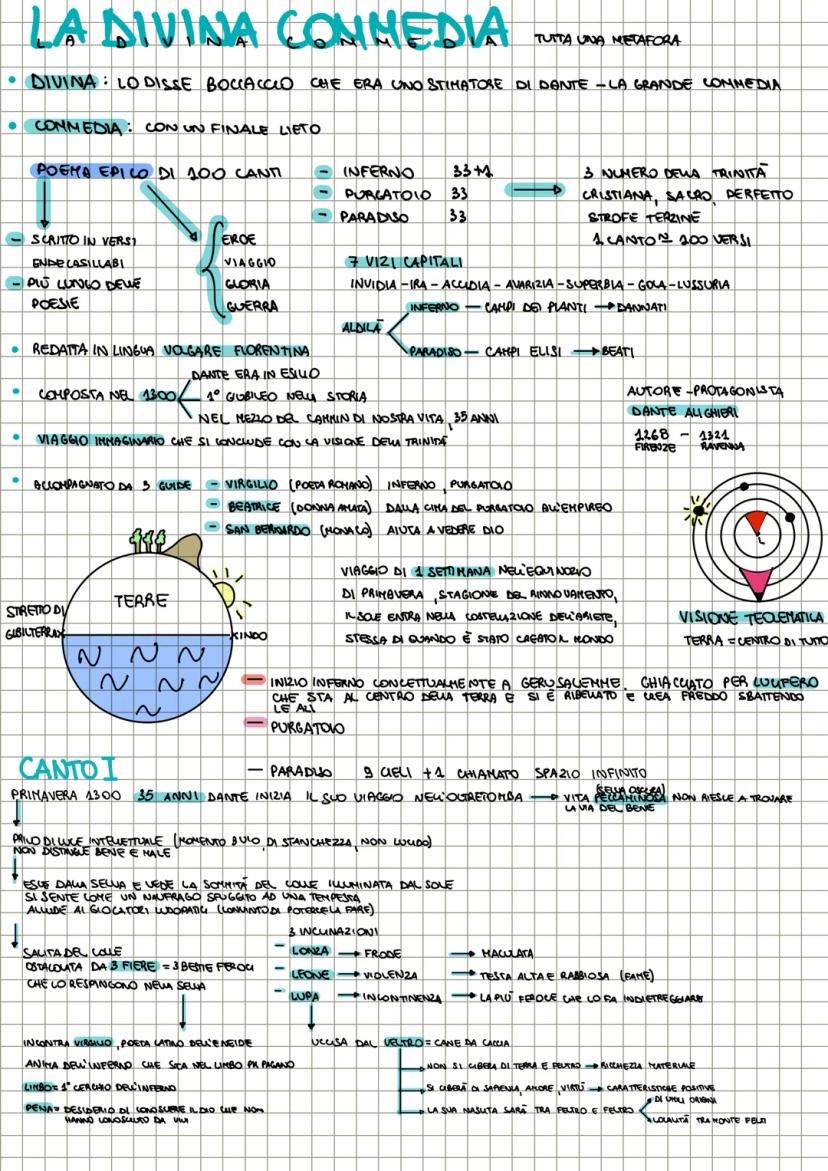 LA DIVINA COMMEDIA
LA DIVINA COMMEDIA TUTTA UNA METAFORA
• DIVINA: LO DISSE BOCCACCIO CHE ERA UNO STIMATORE DI DANTE - LA GRANDE COMMEDIA
• COMMEDIA: CON UN FINALE LIETO
POEMA EPICO DI 100 CANTI
- INFERNO 33+1
- PURGATOIO 33
- PARADISO 33
3 NUMERO DELLA TRINITÀ
CRISTIANA, SACRO, PERFETTO
STROFE TERZINE
1 CANTO ≃ 100 VERSI
- SCRITTO IN VERSI
ENDECASILLABI
- PIÙ LUNGO DELLE
POESIE
EROE
VIAGGIO
GLORIA
GUERRA
7 VIZI CAPITALI
INVIDIA - IRA - ACCIDIA - AVARIZIA - SUPERBIA - GOLA - LUSSURIA
ALDILÀ
INFERNO — CAMPI DEI PIANTI → DANNATI
PARADISO — CAMPI ELISI → BEATI
• REDATTA IN LINGUA VOLGARE FIORENTINA
• COMPOSTA NEL 1300
DANTE ERA IN ESILIO
1° GIUBILEO NELLA STORIA
NEL MEZZO DEL CAMMIN DI NOSTRA VITA, 35 ANNI
• VIAGGIO IMMAGINARIO CHE SI CONCLUDE CON LA VISIONE DELLA TRINITÀ
AUTORE - PROTAGONISTA
DANTE ALIGHIERI
1268 - 1321
FIRENZE RAVENNA
• ACCOMPAGNATO DA 3 GUIDE
- VIRGILIO (POETA ROMANO) INFERNO, PURGATOIO
- BEATRICE (DONNA AMATA) DALLA CIMA DEL PURGATOIO ALL'EMPIREO
- SAN BERNARDO (MONACO) AIUTA A VEDERE DIO
TERRE
STRETTO DI
GIBILTERRA
INDO
VIAGGIO DI 1 SETTIMANA NELL'EQUINOZIO
DI PRIMAVERA, STAGIONE DEL RINNOVAMENTO,
IL SOLE ENTRA NELLA COSTELLAZIONE DELL'ARIETE,
STESSA DI QUANDO È STATO CREATO IL MONDO
VISIONE TEOLEMATICA
TERRA = CENTRO DI TUTTO
— INIZIO INFERNO CONCETTUALMENTE A GERUSALEMME. GHIACCIATO PER LUCIFERO
CHE STA AL CENTRO DELLA TERRA E SI È RIBELLATO E CREA FREDDO SBATTENDO
LE ALI
— PURGATOIO
— PARADISO 9 CIELI +1 CHIAMATO SPAZIO INFINITO
CANTO I
PRIMAVERA 1300 35 ANNI DANTE INIZIA IL SUO VIAGGIO NELL'OLTRETOMBA → VITA PECCAMINOSA NON RIESCE A TROVARE
(SELVA OSCURA)
LA VIA DEL BENE
PRIVO DI LUCE INTELLETTUALE (MOMENTO BUIO, DI STANCHEZZA, NON LUCIDO)
NON DISTINGUE BENE E MALE
ESCE DALLA SELVA E VEDE LA SOMMITÀ DEL COLLE ILLUMINATA DAL SOLE
SI SENTE COME UN NAUFRAGO SFUGGITO AD UNA TEMPESTA
ALLUDE AI GIOCATORI LUDOPATICI (CONVINTO DI POTERCELA FARE)
SALITA DEL COLLE
OSTACOLATA DA 3 FIERE = 3 BESTIE FEROCI
CHE LO RESPINGONO NELLA SELVA
3 INCLINAZIONI
- LONZA → FRODE → MACULATA
- LEONE → VIOLENZA → TESTA ALTA E RABBIOSA (FAME)
- LUPA → INCONTINENZA → LA PIÙ FEROCE CHE LO FA INDIETREGGIARE
INCONTRA VIRGILIO, POETA LATINO DELL'ENEIDE
ANIMA DELL'INFERNO CHE STA NEL LIMBO PK PAGANO
LIMBO = 1° CERCHIO DELL'INFERNO
PENA = DESIDERIO DI CONOSCERE IL DIO CHE NON
HANNO CONOSCIUTO DA VIVI
UCCISA DAL VELTRO = CANE DA CACCIA
NON SI CIBERÀ DI TERRA E PELTRO → RICCHEZZA MATERIALE
SI CIBERÀ DI SAPIENZA, AMORE, VIRTÙ → CARATTERISTICHE POSITIVE
LA SUA NASCITA SARÀ TRA FELTRO E FELTRO
DI UMILI ORIGINI
LOCALITÀ TRA MONTE FELTRI